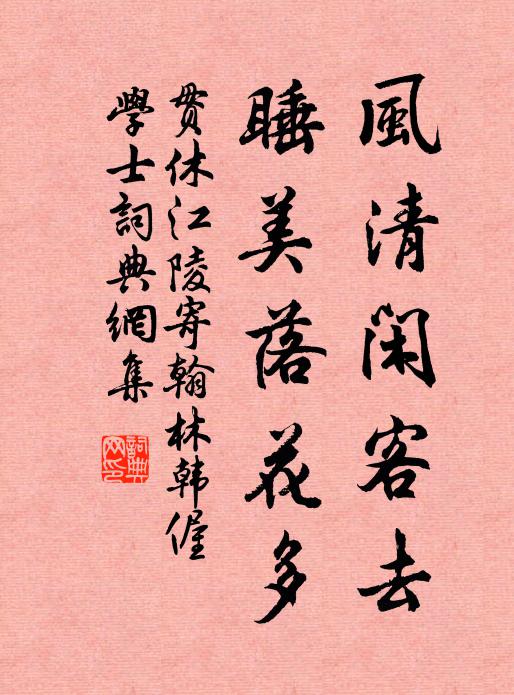 風清閑客去
睡美落花多
貫休江陵寄翰林韩偓
學士詞典網集
詞典網印